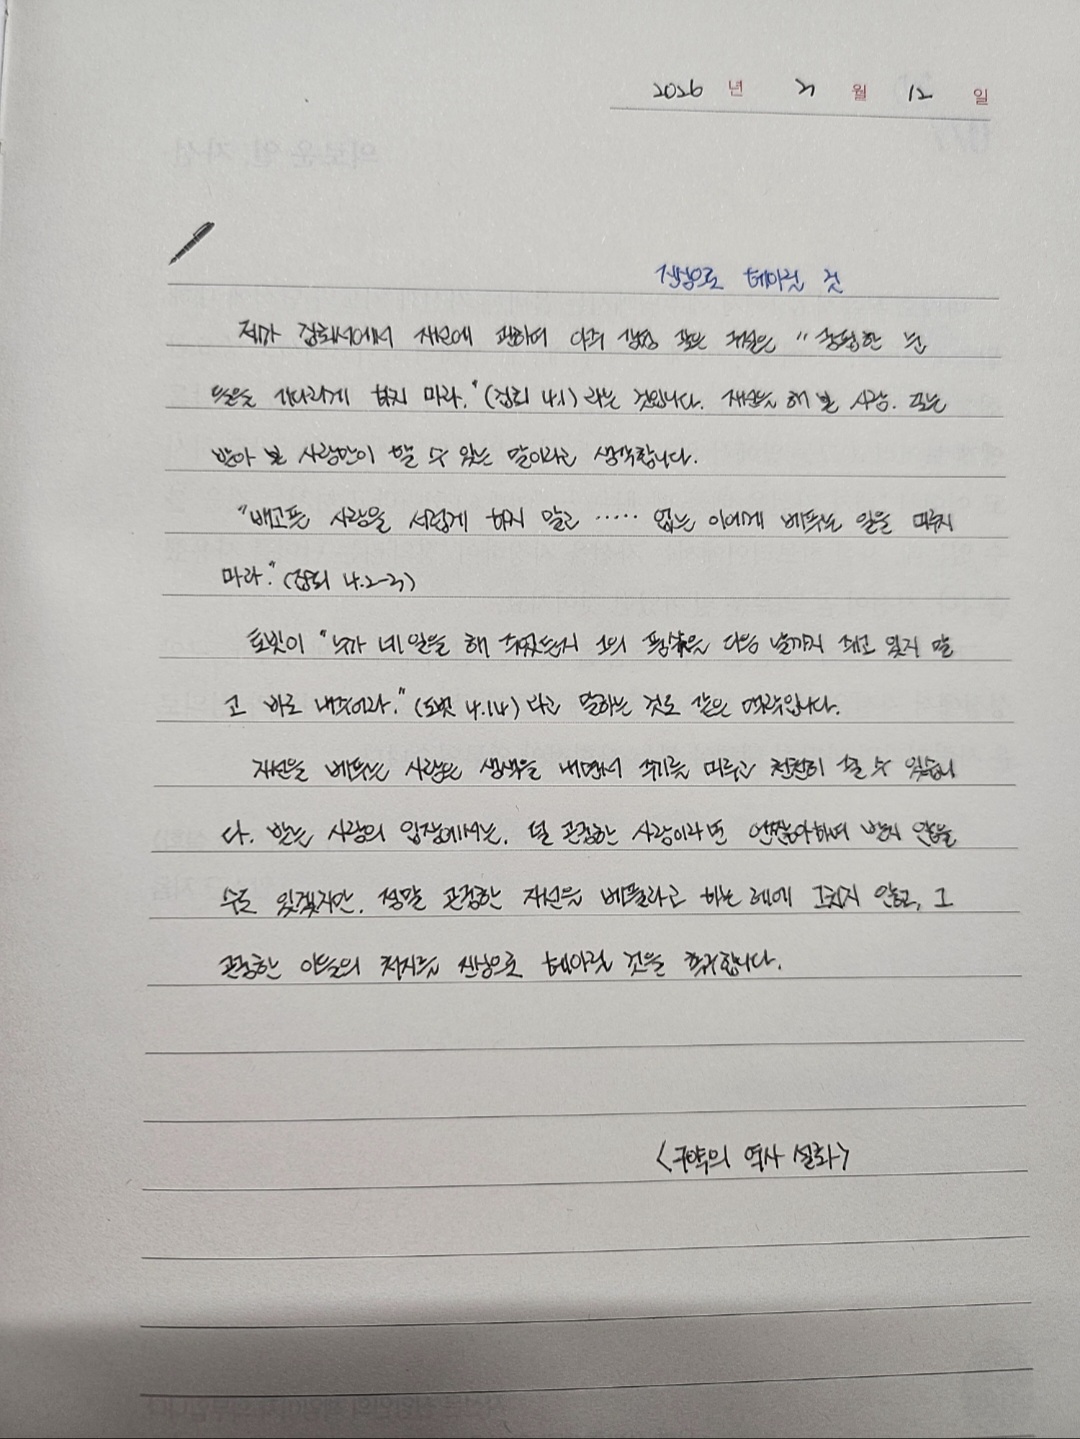 2026 년 월 12 일
진심으로 헤아릴 것
제가 집회서에서 자선에 관하여 아주 깊은 구절은 "궁핍한 눈
들을 기다리게 하지 마라."(집회 4.1) 라는 것입니다. 자선을 해 본 사람, 또는
받아 본 사람만이 할 수 있는 말이라고 생각합니다.
"배고픈 사람을 서럽게 하지 말고 ····· 없는 이에게 베푸는 일을 미루지
마라."(집회 4.2-3)
토빗이 "누가 네 일을 해 주었든지 그의 품삯을 다음 날까지 쥐고 있지 말
고 바로 내주어라."(토빗 4.14) 라고 말하는 것도 같은 맥락입니다.
자선을 베푸는 사람은 생색을 내면서 주기를 미루고 천천히 줄 수 있습니
다. 받는 사람의 입장에서는, 덜 곤궁한 사람이라면 언짢아하며 받지 않을
수도 있겠지만, 정말 곤궁한 자선을 베풀라고 하는 데에 그치지 않고, 그
곤궁한 이들의 처지를 진심으로 헤아릴 것을 촉구합니다.
<구약의 역사 설화>